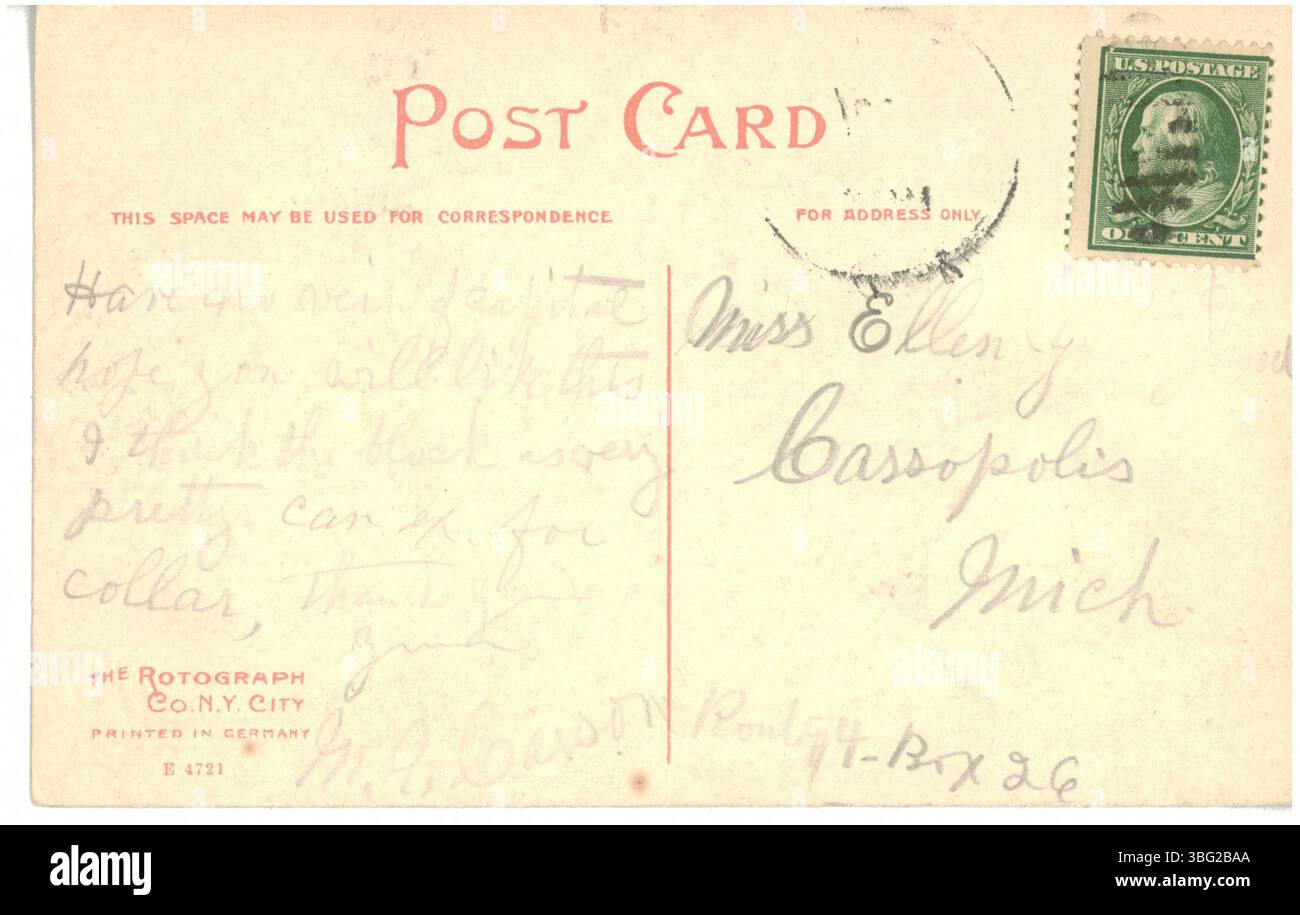 POST CARD
U.S. POSTAGE
ONE CENT
THIS SPACE MAY BE USED FOR CORRESPONDENCE
FOR ADDRESS ONLY
Have no view of capital
hope you will like this
I think the block is very
pretty. can ex. for
collar, thank you
Miss Ellen
Cassopolis
Mich.
THE ROTOGRAPH
CO. N.Y. CITY
PRINTED IN GERMANY
E 4721
Carson Route 4 - Box 26
alamy
Image ID: 3BG2BAA
www.alamy.com